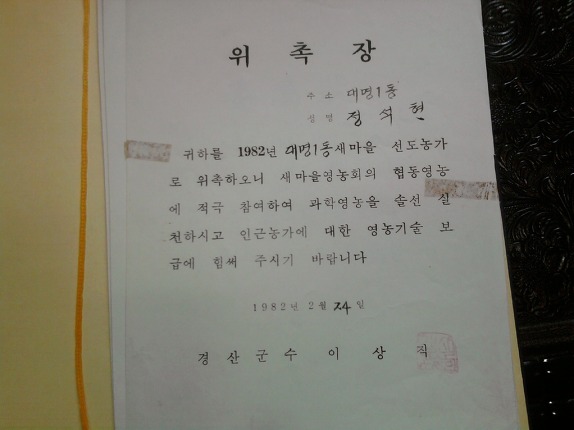 위 촉 장
주 소 대명1동
성 명 정석현
귀하를 1982년 대명1동새마을 선도농가
로 위촉하오니 새마을영농회의 협동영농
에 적극 참여하여 과학영농을 솔선 실
천하시고 인근농가에 대한 영농기술 보
급에 힘써 주시기 바랍니다
1982년 2월 24일
경 산 군 수 이 상 직